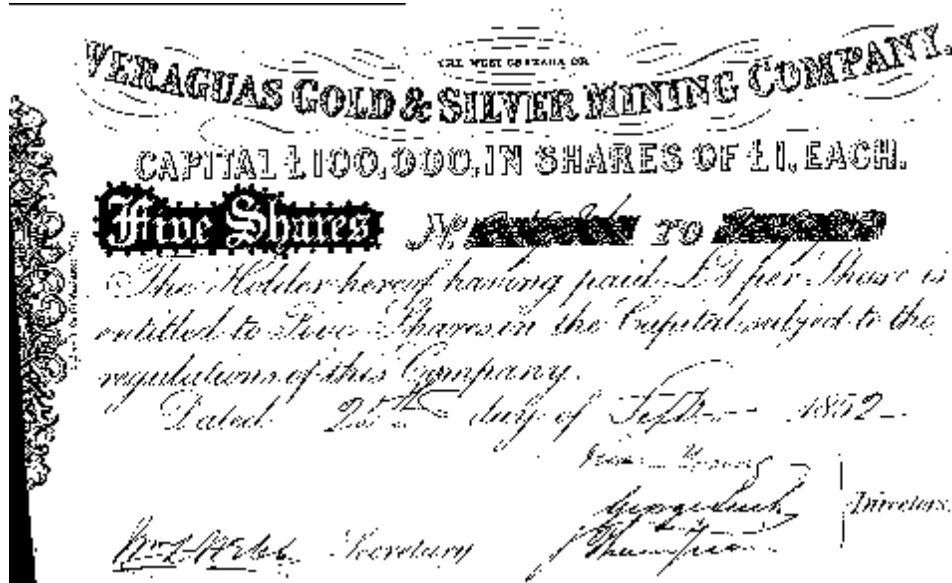 THE WEST GRANADA OR
VERAGUAS GOLD & SILVER MINING COMPANY.
CAPITAL £100,000, IN SHARES OF £1, EACH.
Five Shares No. TO
The Holder hereof having paid £1 per Share is
entitled to Five Shares in the Capital subject to the
regulations of this Company.
Dated 25th day of Septr 1852
Directors.
Secretary